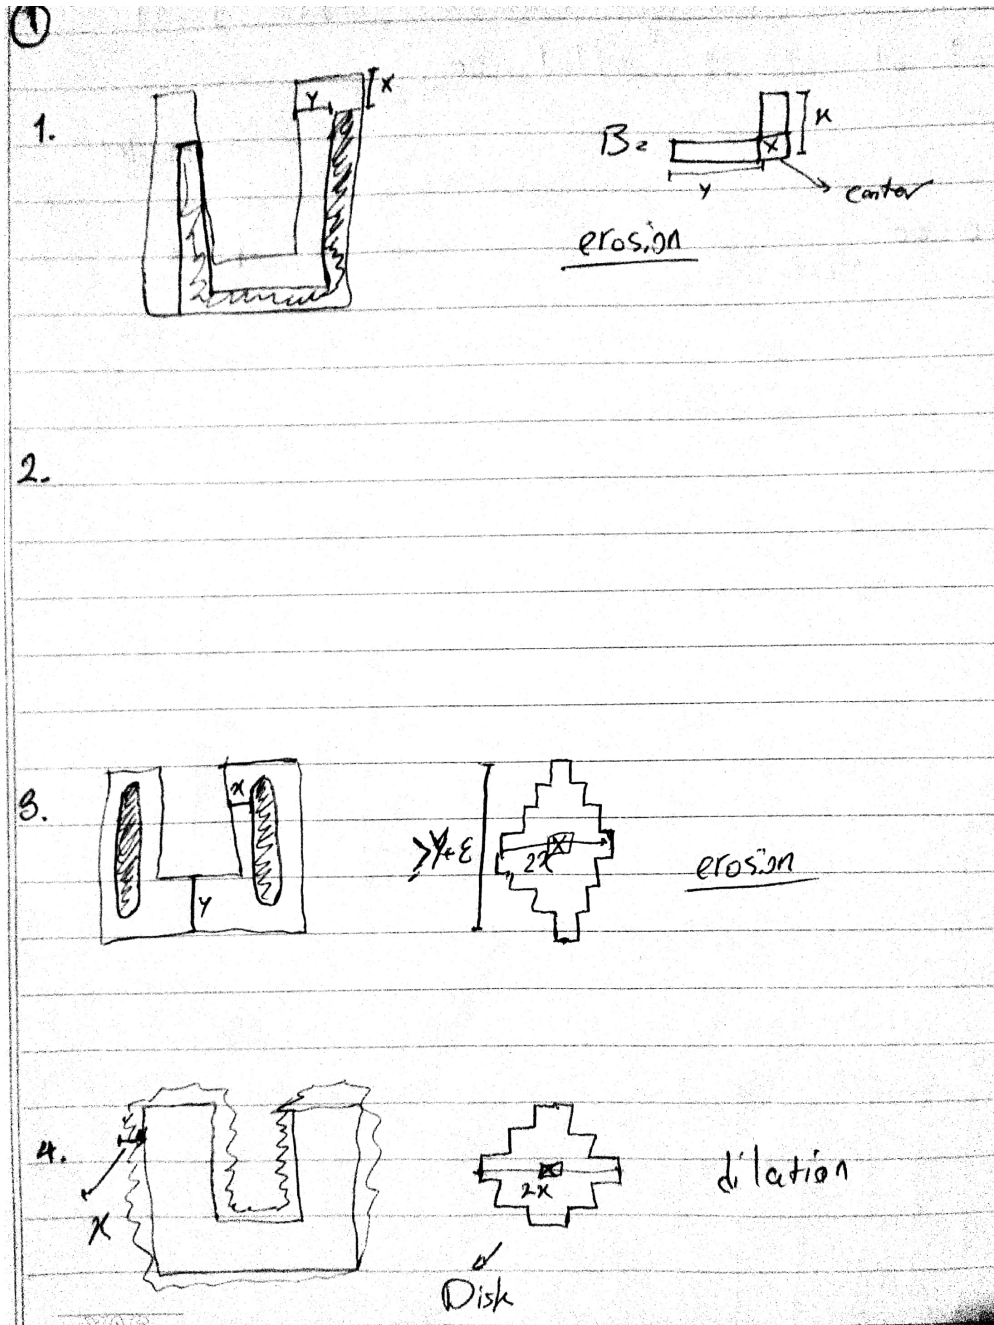 1
1.
Y
X
B =
X
x
Y
center
erosion
2.
3.
x
Y
≥Y+ε
X
2x
erosion
4.
x
X
2x
dilation
Disk